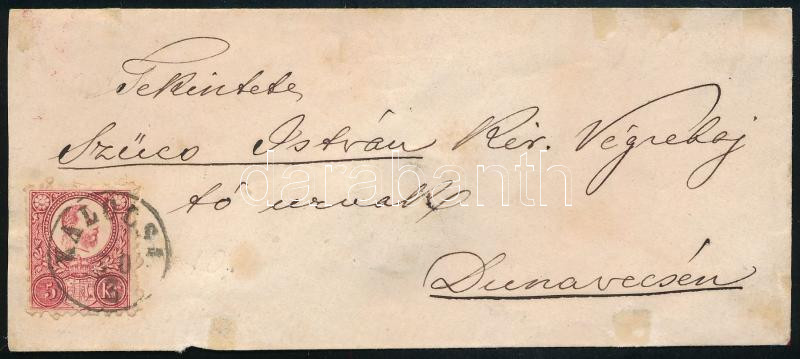 Tekintetes
Szücs István Kir. Végrehaj
tó urnak
Dunavecsén
KALOCSA
5 Kr
darabanth